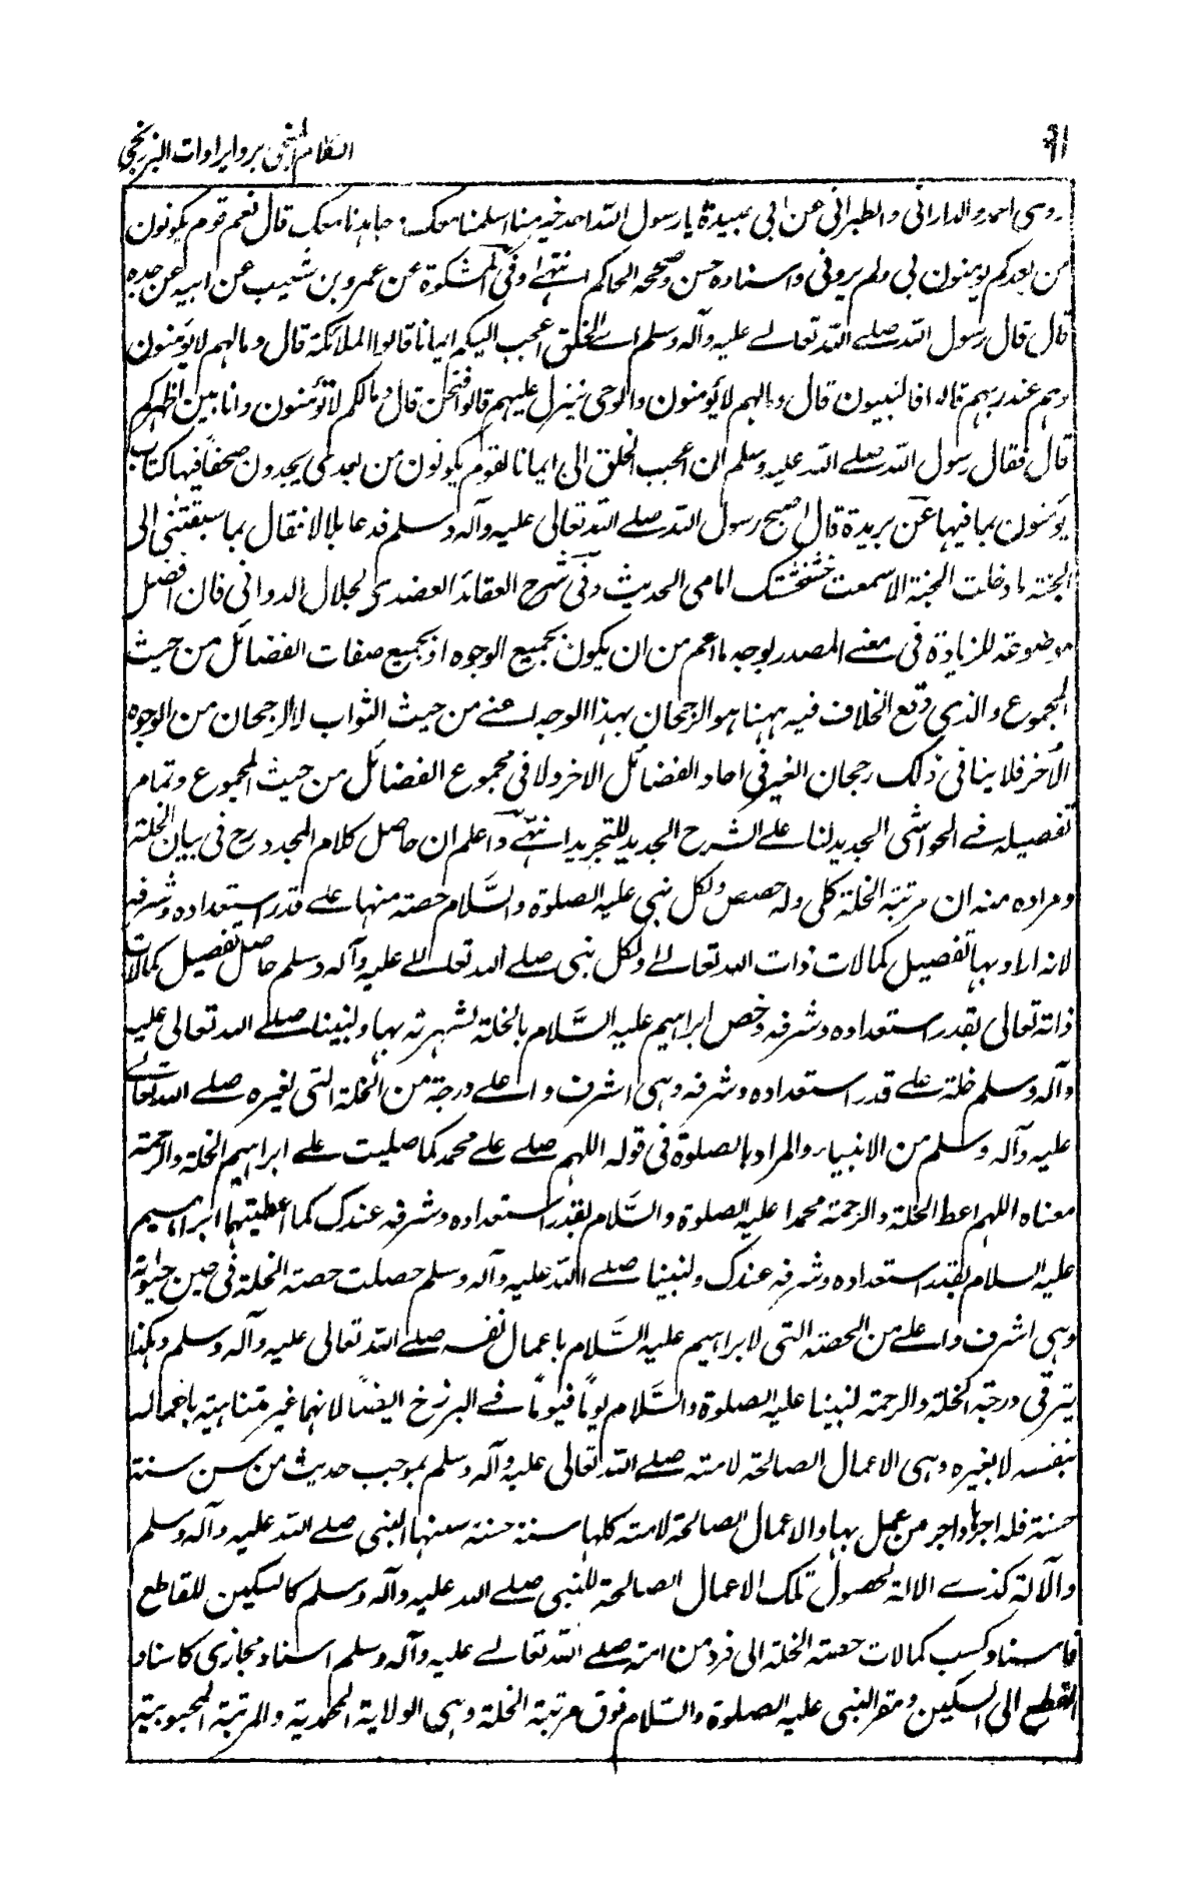 ۹۱
الكلام المنجی بردایرادات البرزنجی
روی احمد والدارانی والطبرانی عن ابی عبیدة یا رسول الله احد خیر منا اسلمنا معک وجاهدنا معک قال نعم قوم یکونون
من بعدکم یومنون بی ولم یرونی واسناده حسن وصححه الحاکم انتهے وفی المشکوة عن عمرو بن شعیب عن ابیه عن جده
قال قال رسول الله صلے الله تعالے علیه وآله وسلم اے الخلق اعجب الیکم ایمانا قالوا الملائکة قال ومالهم لا یؤمنون
وهم عند ربهم قالوا فالنبیون قال ومالهم لا یؤمنون والوحی ینزل علیهم قالوا فنحن قال ومالکم لا تؤمنون وانا بین اظهرکم
قال فقال رسول الله صلے الله علیه وسلم ان اعجب الخلق الی ایمانا لقوم یکونون من بعدی یجدون صحفا فیها کتاب
یؤمنون بما فیها عن بریدة قال اصبح رسول الله صلے الله تعالی علیه وآله وسلم فدعا بلالا فقال بما سبقتنی الی
الجنة ما دخلت الجنة الا سمعت خشخشتک امامی الحدیث وفی شرح العقائد العضدی لجلال الدوانی فان افضل
موضوعة للزیادة فی معنے المصدر بوجه ما اعم من ان یکون بجمیع الوجوه او بجمیع صفات الفضائل من حیث
المجموع والذی وقع الخلاف فیه ههنا هو الرجحان بهذا الوجه اعنے من حیث الثواب لا الرجحان من الوجوه
الاخر فلا ینافی ذلک رجحان الغیر فی احاد الفضائل الاخر ولا فی مجموع الفضائل من حیث المجموع وتمام
تفصیله فے الحواشی الجدیدلنا علے الشرح الجدید للتجرید انتهے واعلم ان حاصل کلام المجدد رح فی بیان الخلة
ومراده منه ان مرتبة الخلة کلی وله حصص ولکل نبی علیه الصلوة والسَّلام حصة منها علے قدر استعداده وشرفه
لانه اراد بها تفصیل کمالات ذات الله تعالے ولکل نبی صلے الله تعالے علیه وآله وسلم حاصل تفصیل کمالات
ذاته تعالی بقدر استعداده وشرفه وخص ابراهیم علیه السَّلام بالخلة لشهرته بها ولنبینا صلے الله تعالی علیه
وآله وسلم خلة علے قدر استعداده وشرفه وهی اشرف واعلے درجة من الخلة التی لغیره صلے الله تعالے
علیه وآله وسلم من الانبیاء والمراد بالصلوة فی قوله اللهم صلے علے محمد کما صلیت علے ابراهیم الخلة والرحمة
معناه اللهم اعط الخلة والرحمة محمدا علیه الصلوة والسَّلام بقدر استعداده وشرفه عندک کما اعطیتهما ابراهیم
علیه السلام بقدر استعداده وشرفه عندک ولنبینا صلے الله علیه وآله وسلم حصلت حصة الخلة فی حین حیوته
وهی اشرف واعلے من الحصة التی لابراهیم علیه السَّلام باعمال نفسه صلے الله تعالی علیه وآله وسلم وهکذا
یترقی درجة الخلة والرحمة لنبینا علیه الصلوة والسَّلام یوماً فیوماً فے البرزخ ایضاً لانها غیر متناهیة باعماله
بنفسه لا بغیره وهی الاعمال الصالحة لامته صلے الله تعالی علیه وآله وسلم بموجب حدیث من سن سنة
حسنة فله اجرها واجر من عمل بها والاعمال الصالحة لامته کلها سنة حسنة سنها النبی صلے الله علیه وآله وسلم
والآلة کذے الالة لحصول تلک الاعمال الصالحة للنبی صلے الله علیه وآله وسلم کالسکین للقاطع
فاسناد کسب کمالات حصة الخلة الی فرد من امته صلے الله تعالے علیه وآله وسلم اسناد مجازی کاسناد
القطع الی السکین ومقر النبی علیه الصلوة والسلام فوق مرتبة الخلة وهی الولایة المحمدیة والمرتبة المحبوبیة